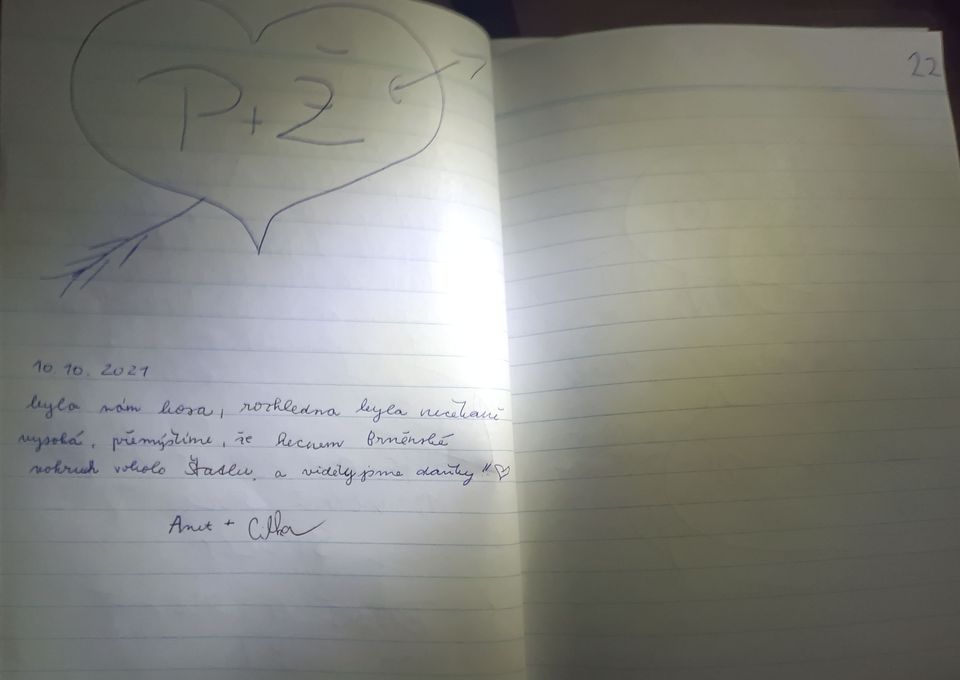 P + Ž
22
10 10. 2021
byla nám kosa, rozhledna byla nečekaně
vysoká, přemýšlíme, že hecnem Brněnské
vokruh vokolo Špaslu, a viděly jsme daňky"♡
Anet + Cilka